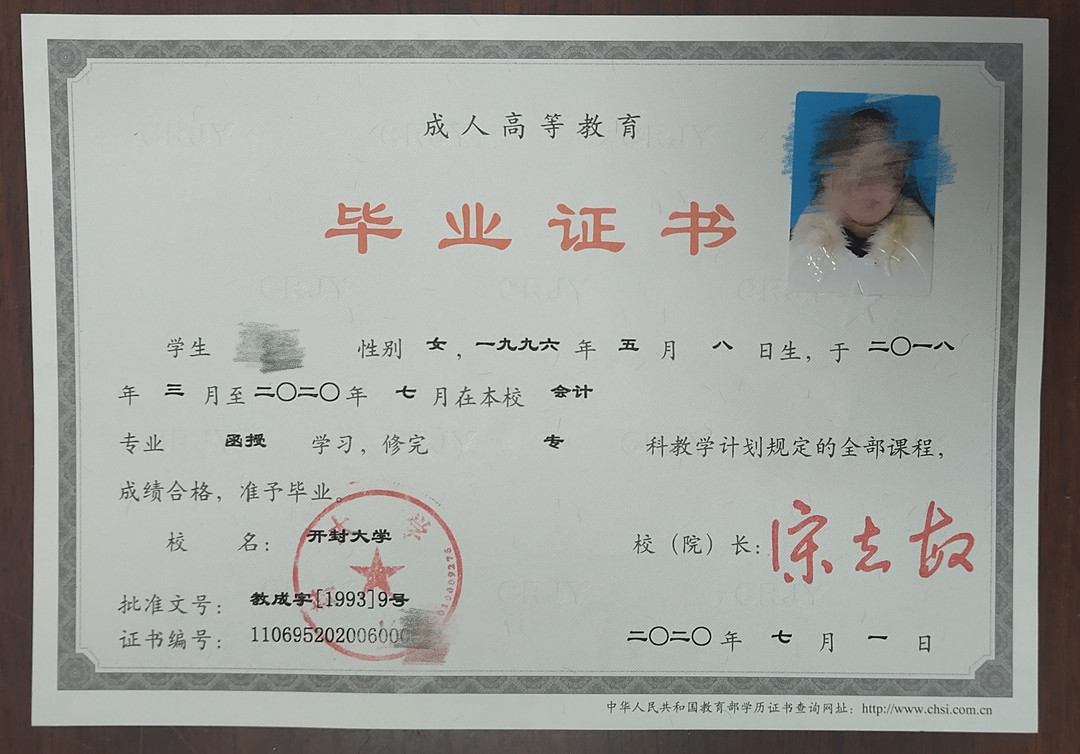 成人高等教育
毕业证书
学生 性别 女，一九九六 年 五 月 八 日生，于 二〇一八
年 三 月至 二〇二〇 年 七 月在本校 会计
专业 函授 学习，修完 专 科教学计划规定的全部课程，
成绩合格，准予毕业。
校 名： 开封大学 校（院）长：宋志敢
批准文号： 教成字[1993]9号
证书编号： 110695202006000
二〇二〇 年 七 月 一 日
中华人民共和国教育部学历证书查询网址：http://www.chsi.com.cn